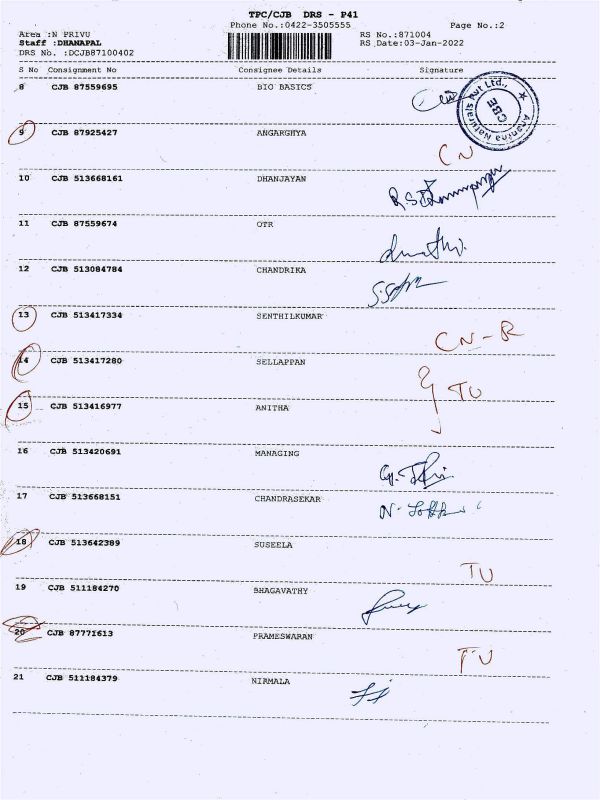 TPC/CJB DRS - P41
Phone No.:0422-3505555 Page No.:2
Area :N PRIVU RS No.:871004
Staff :DHANAPAL RS Date:03-Jan-2022
DRS No. :DCJB87100402
S No Consignment No Consignee Details Signature
8 CJB 87559695 BIO BASICS
Pvt Ltd., CBE
9 CJB 87925427 ANGARGHYA CN
10 CJB 513668161 DHANJAYAN
11 CJB 87559674 OTR
12 CJB 513084784 CHANDRIKA
13 CJB 513417334 SENTHILKUMAR CN-R
14 CJB 513417280 SELLAPPAN TU
15 CJB 513416977 ANITHA
16 CJB 513420691 MANAGING
17 CJB 513668151 CHANDRASEKAR
18 CJB 513642389 SUSEELA TU
19 CJB 511184270 BHAGAVATHY
20 CJB 87771613 PRAMESWARAN TU
21 CJB 511184379 NIRMALA